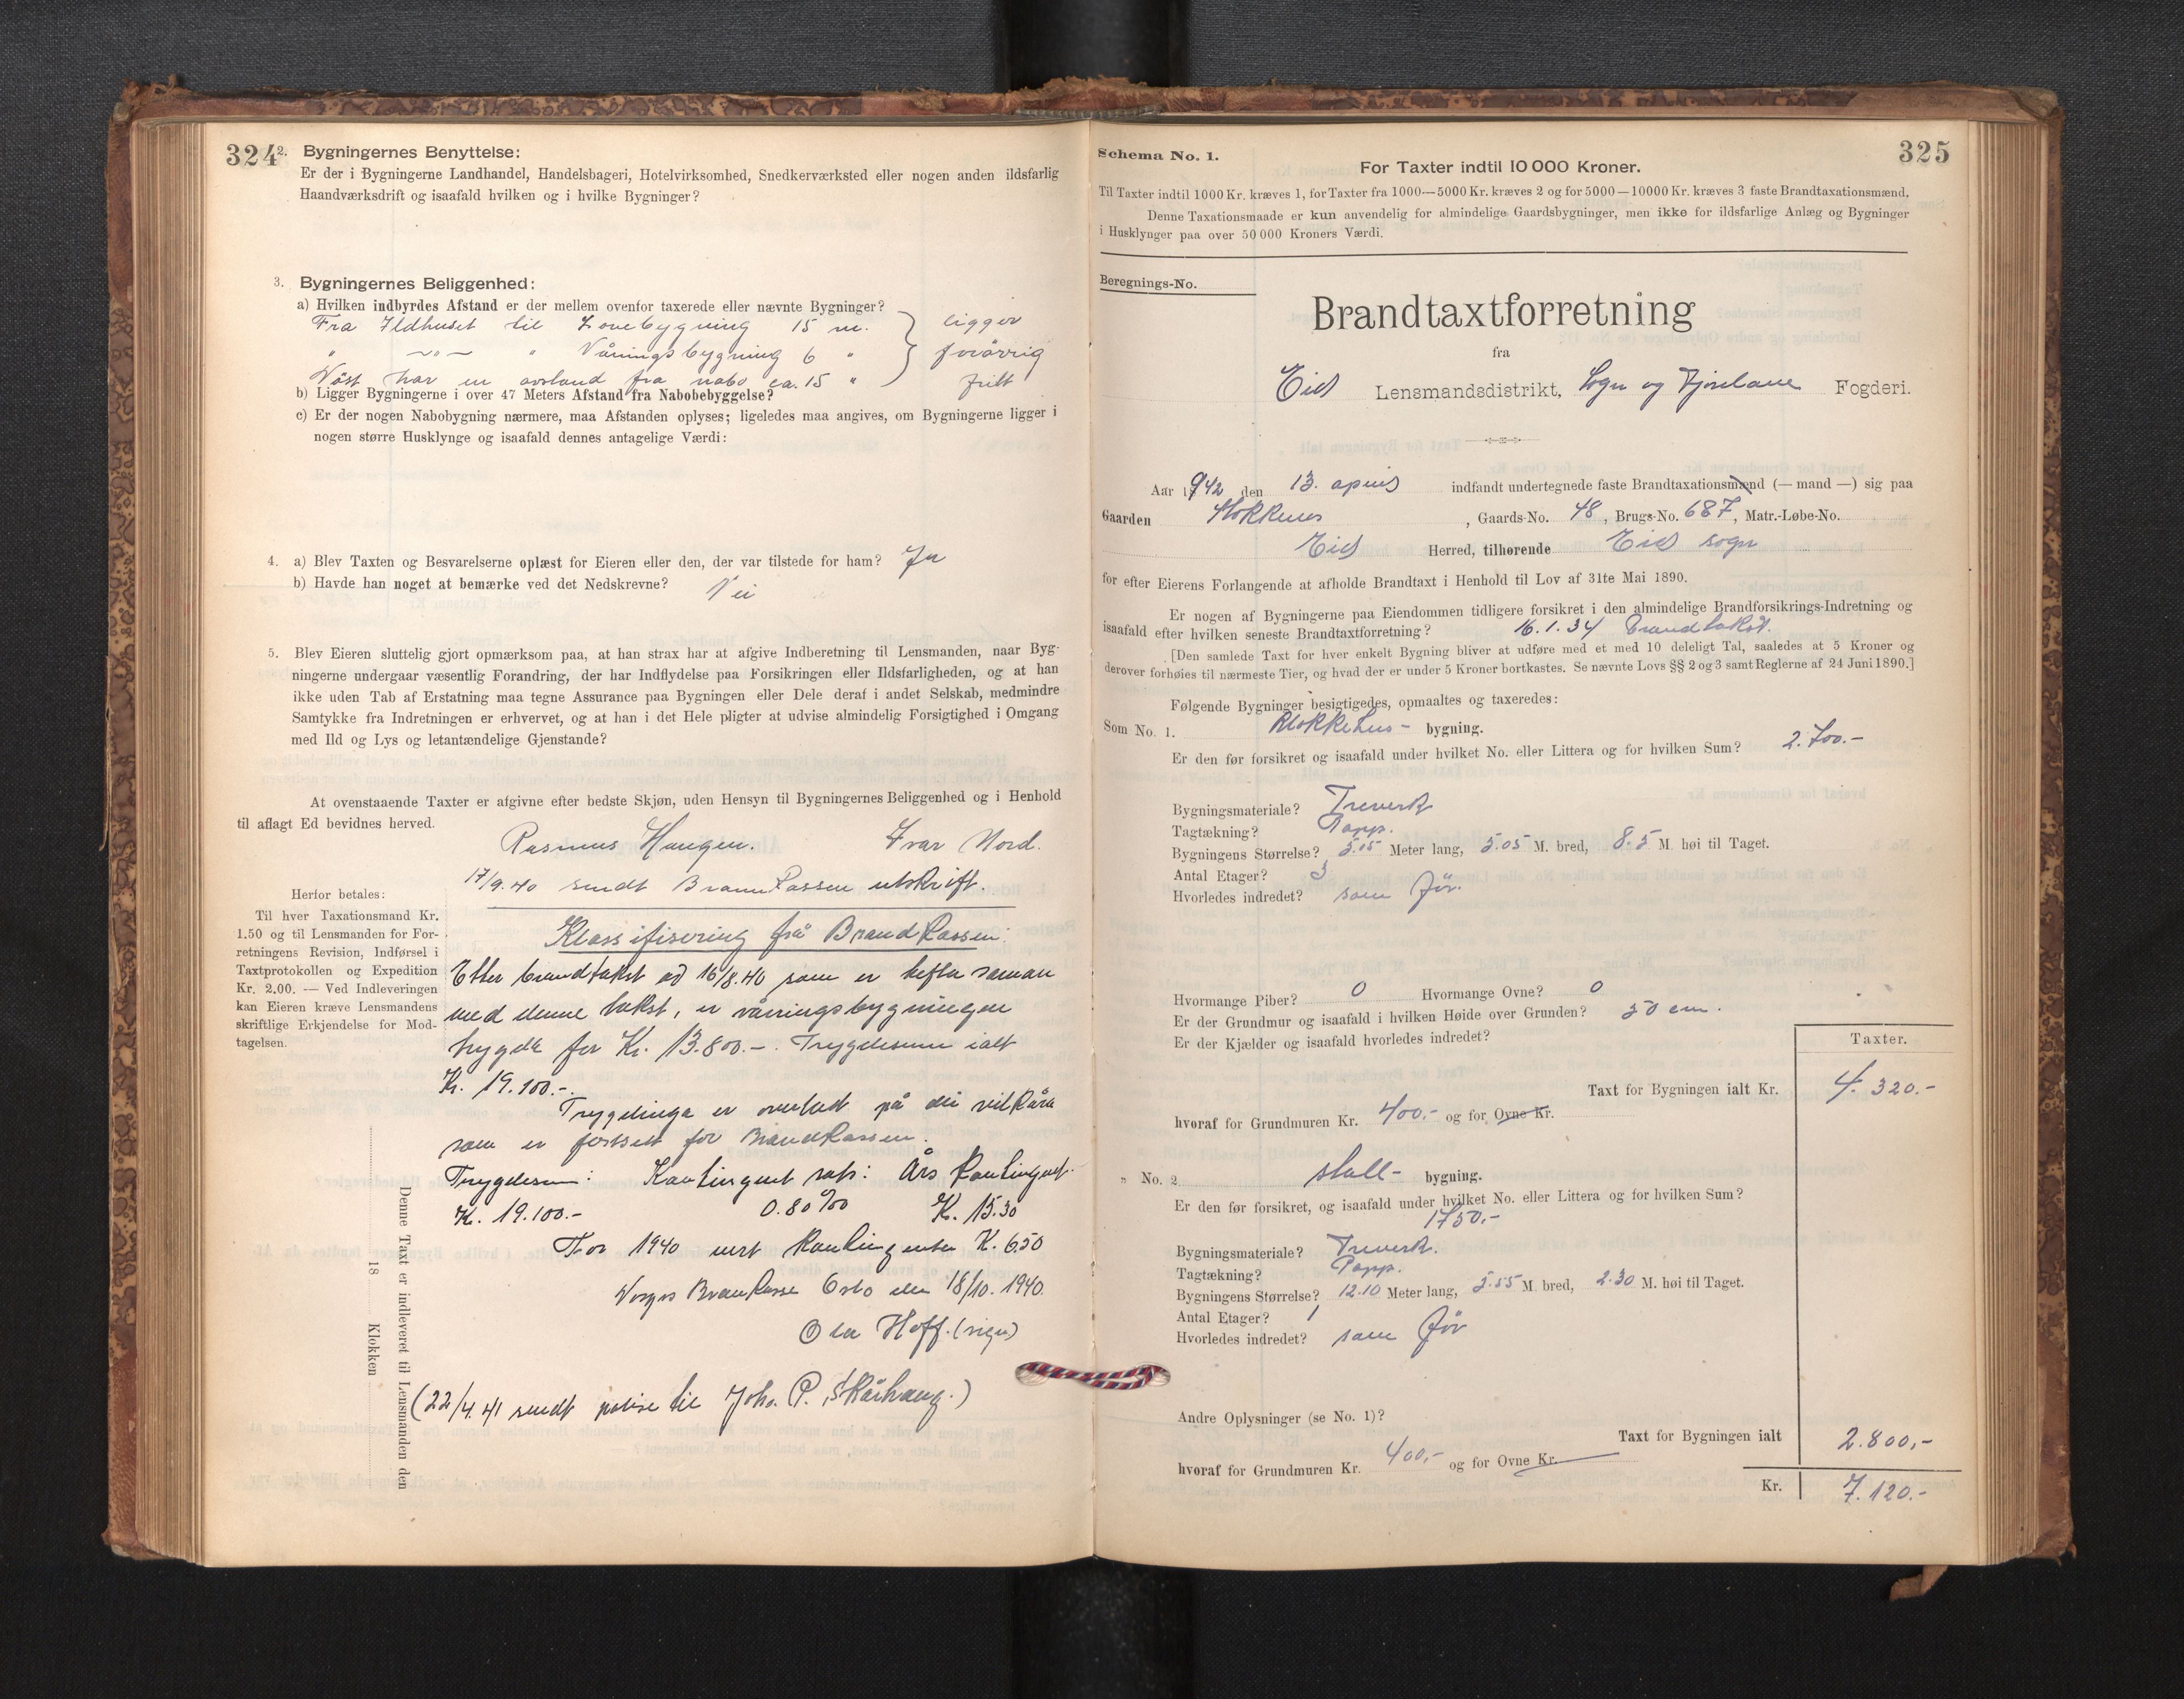 324
2. Bygningernes Benyttelse:
Er der i Bygningerne Landhandel, Handelsbageri, Hotelvirksomhed, Snedkerværksted eller nogen anden ildsfarlig
Haandværksdrift og isaafald hvilken og i hvilke Bygninger?
3. Bygningernes Beliggenhed:
a) Hvilken indbyrdes Afstand er der mellem ovenfor taxerede eller nævnte Bygninger?
Fra Ildhuset til Lovebygning 15 m. ligger
" —"— " Våningsbygning 6 " forøvrig
Vöst har en avstand fra nabo ca. 15 " fritt
b) Ligger Bygningerne i over 47 Meters Afstand fra Nabobebyggelse?
c) Er der nogen Nabobygning nærmere, maa Afstanden oplyses; ligeledes maa angives, om Bygningerne ligger i
nogen større Husklynge og isaafald dennes antagelige Værdi:
4. a) Blev Taxten og Besvarelserne oplæst for Eieren eller den, der var tilstede for ham? Ja
b) Havde han noget at bemærke ved det Nedskrevne? Nei
5. Blev Eieren sluttelig gjort opmærksom paa, at han strax har at afgive Indberetning til Lensmanden, naar Byg-
ningerne undergaar væsentlig Forandring, der har Indflydelse paa Forsikringen eller Ildsfarligheden, og at han
ikke uden Tab af Erstatning maa tegne Assurance paa Bygningen eller Dele deraf i andet Selskab, medmindre
Samtykke fra Indretningen er erhvervet, og at han i det Hele pligter at udvise almindelig Forsigtighed i Omgang
med Ild og Lys og letantændelige Gjenstande?
At ovenstaaende Taxter er afgivne efter bedste Skjøn, uden Hensyn til Bygningernes Beliggenhed og i Henhold
til aflagt Ed bevidnes herved.
Rasmus Haugen. Ivar Nord.
17/9.40 sendt Brannkassen utskrift.
Herfor betales:
Til hver Taxationsmand Kr.
1.50 og til Lensmanden for For-
retningens Revision, Indførsel i
Taxtprotokollen og Expedition
Kr. 2.00. — Ved Indleveringen
kan Eieren kræve Lensmandens
skriftlige Erkjendelse for Mod-
tagelsen.
Klassifisering frå Brandkassen:
Etter brandtakst ad 16/8.40 som er hefta saman
med denne takst, er våningsbygningen
trygda for Kr. 13.800.-. Trygdesum ialt
Kr. 19.100.-.
Trygdinga er overlat på dei vilkåra
som er fastsett for Brandkassen.
Trygdesum: Kontingent sats: Års kontingent.
Kr. 19.100.- 0.80 ‰ K. 15.30
For 1940 vert kontingenten K. 6.50
Norges Brannkasse Oslo den 18/10. 1940.
Ola Hoff. (sign)
(22/4.41 sendt polise til Johs. P. Skårhaug.)
Denne Taxt er indleveret til Lensmanden den
18 Klokken
325
Schema No. 1.
For Taxter indtil 10 000 Kroner.
Til Taxter indtil 1000 Kr. kræves 1, for Taxter fra 1000—5000 Kr. kræves 2 og for 5000—10000 Kr. kræves 3 faste Brandtaxationsmænd.
Denne Taxationsmaade er kun anvendelig for almindelige Gaardsbygninger, men ikke for ildsfarlige Anlæg og Bygninger
i Husklynger paa over 50 000 Kroners Værdi.
Beregnings-No.
Brandtaxtforretning
fra
Eid Lensmandsdistrikt, Sogn og Fjordane Fogderi.
Aar 1942 den 13. april indfandt undertegnede faste Brandtaxationsmænd (— mand —) sig paa
Gaarden , Gaards-No. 48, Brugs-No. 687, Matr.-Løbe-No.
Eid Herred, tilhørende Eid sogn
for efter Eierens Forlangende at afholde Brandtaxt i Henhold til Lov af 31te Mai 1890.
Er nogen af Bygningerne paa Eiendommen tidligere forsikret i den almindelige Brandforsikrings-Indretning og
isaafald efter hvilken seneste Brandtaxtforretning? 16.1.34 Brandtakst.
[Den samlede Taxt for hver enkelt Bygning bliver at udføre med et med 10 deleligt Tal, saaledes at 5 Kroner og
derover forhøies til nærmeste Tier, og hvad der er under 5 Kroner bortkastes. Se nævnte Lovs §§ 2 og 3 samt Reglerne af 24 Juni 1890.]
Følgende Bygninger besigtigedes, opmaaltes og taxeredes:
Som No. 1. Klokkehus- bygning.
Er den før forsikret og isaafald under hvilket No. eller Littera og for hvilken Sum? 2.700.-
Bygningsmateriale? Treverk
Tagtækning? Papp.
Bygningens Størrelse? 5.05 Meter lang, 5.05 M. bred, 8.5 M. høi til Taget.
Antal Etager? 3
Hvorledes indredet? som för.
Hvormange Piber? 0 Hvormange Ovne? 0
Er der Grundmur og isaafald i hvilken Høide over Grunden? 50 cm.
Er der Kjælder og isaafald hvorledes indredet?
Taxter.
Taxt for Bygningen ialt Kr. 4.320.-
hvoraf for Grundmuren Kr. 400.- og for Ovne Kr.
" No. 2 stall- bygning.
Er den før forsikret, og isaafald under hvilket No. eller Littera og for hvilken Sum?
1750.-
Bygningsmateriale? Treverk.
Tagtækning? Papp.
Bygningens Størrelse? 12.10 Meter lang, 5.55 M. bred, 2.30 M. høi til Taget.
Antal Etager? 1
Hvorledes indredet? som för
Andre Oplysninger (se No. 1)?
Taxt for Bygningen ialt 2.800,-
hvoraf for Grundmuren Kr. 400,- og for Ovne Kr.
Kr. 7.120.-